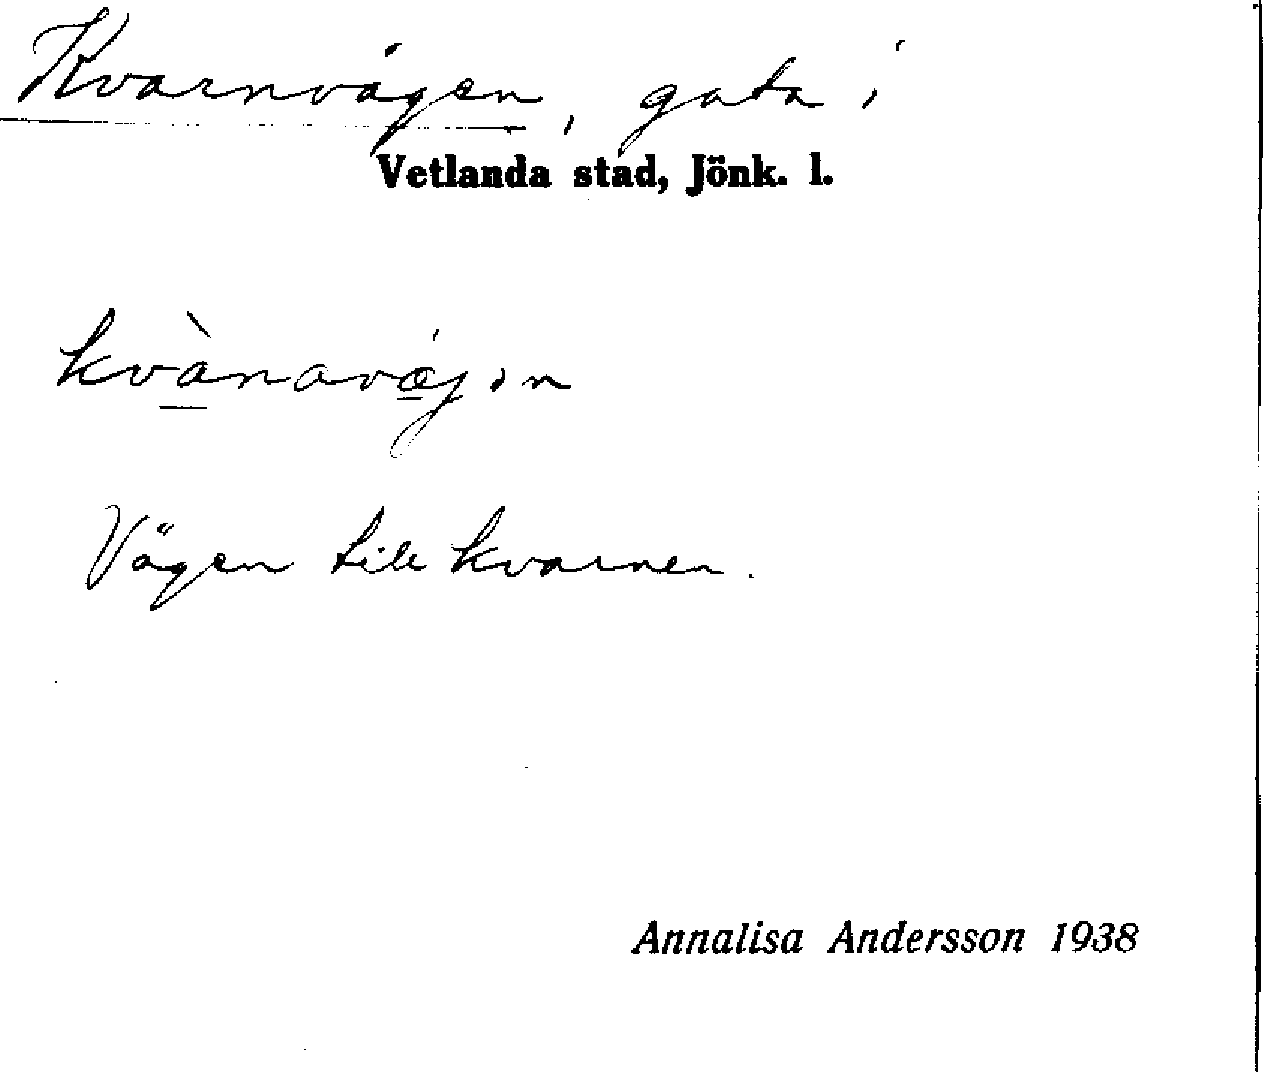 Kvarnvägen, gata i
Vetlanda stad, Jönk. l.
kvànavǽjən
Vägen till kvarnen.
Annalisa Andersson 1938